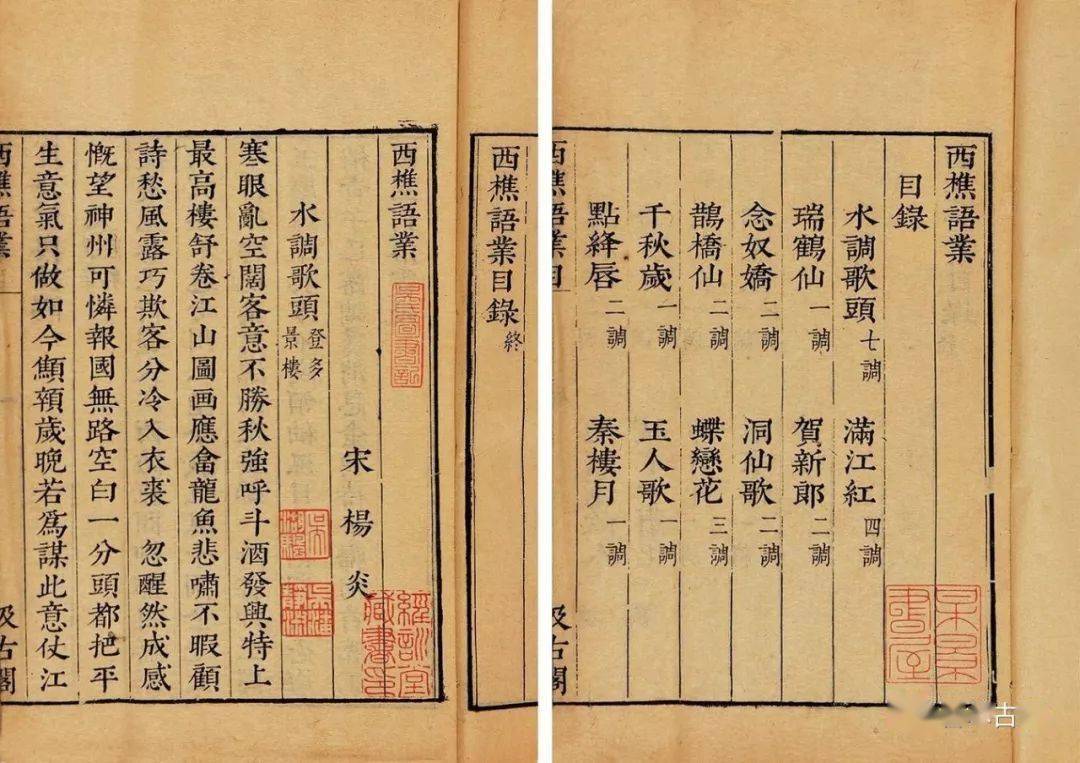 西樵語業
目錄
水調歌頭 七調 滿江紅 四調
瑞鶴仙 一調 賀新郎 二調
念奴嬌 二調 洞仙歌 二調
鵲橋仙 二調 蝶戀花 三調
千秋歲 一調 玉人歌 一調
點絳唇 二調 秦樓月 一調
西樵語業目 汲古閣
西樵語業目錄 終
西樵語業
宋 楊 炎
水調歌頭 登多景樓
寒眼亂空闊客意不勝秋強呼斗酒發興特上
最高樓舒卷江山圖画應畣龍魚悲嘯不暇顧
詩愁風露巧欺客分冷入衣裘 忽醒然成感
慨望神州可憐報國無路空白一分頭都把平
生意氣只做如今顦顇歲晚若爲謀此意仗江
西樵語業 汲古閣
經訓堂藏書印
古